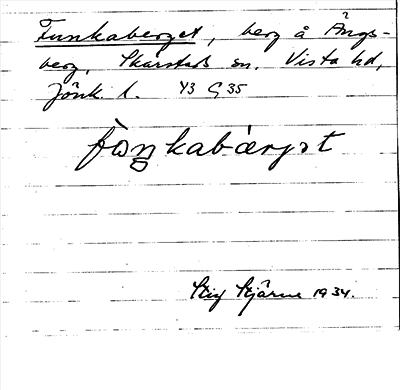 Funkaberget, berg å Ängs-
berg, Skärstads sn. Vista hd,
Jönk. l. Y3 G35
fòŋkabærjət
Stig Stjärne 1934.